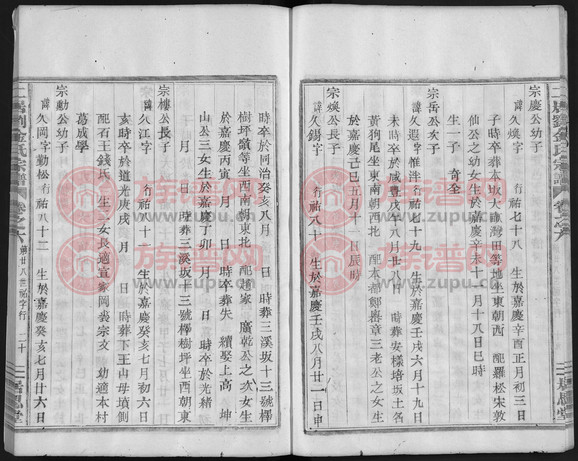 宗慶公幼子
諱久泉字 行祐七十八 生於嘉慶辛酉正月初三日
子時卒葬本坂大嶺灣田筭地坐東朝西 配羅松宋敦
仙公之幼女生於嘉慶辛未十月十八日巳時
生一子 奇全
宗岳公次子
諱久遐字惟浴 行祐七十九 生於嘉慶壬戌六月十九日
未時卒於咸豐戊午八月廿八日 時葬安樣培坂土名
黃狗尾坐東南朝西北 配本都鄮喜章三老公之女生
於嘉慶己巳五月十一日辰時
宗煥公長子
諱久錫字 行祐八十 生於嘉慶壬戌八月廿一日申
時卒於同治癸亥八月 日 時葬三溪坂十三號檡
樹坪嶺等坐西南朝東北 配趙家 廣乾公之次女生
於嘉慶丙寅 月 日 時卒葬失 續娶上高 坤
山公三女生於嘉慶丁卯 月 日 時卒於光緒
月 日 時葬三溪坂十三號檡樹坪坐西朝東
宗樓公長子
諱久江字 行祐八十一 生於嘉慶癸亥七月初六日
亥時卒於道光庚戌 月 日 時葬下王山母墳側
配石王錢氏 生二女長適宣家岡裘宗文 幼適本村
葛成學
宗勳公幼子
諱久岡字勤松 行祐八十二 生於嘉慶癸亥七月廿六日
二居劉金氏宗譜 卷之六 第廿八世祐字行 二十 二居思堂